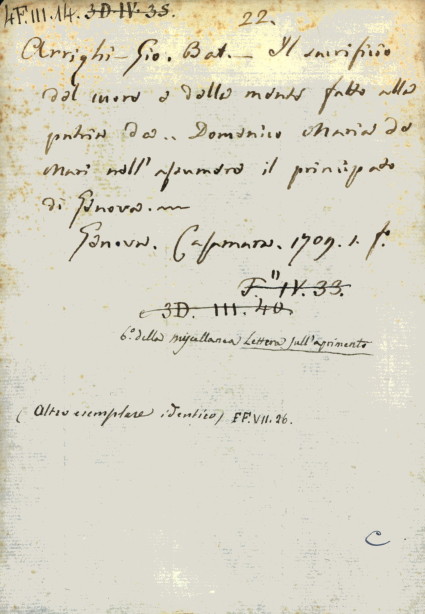 4F. III. 14. 3D-IV-35.
22.
Arrighi - Gio. Bat. - Il sacrificio
del cuore e della mente fatto alla
patria da .. Domenico Maria de
Mari nell'assumere il principato
di Genova. —
Genova. Casamara. 1709. 1. f.º
F. IV. 33.
3D. III. 40
6º della miscellanea Lettera sull'aprimento
(Altro esemplare identico) FF. VII. 26.
C